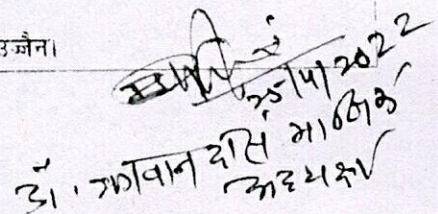 उज्जैन।
25/4/2022
डॉ. भगवान दास मालिक
अध्यक्ष